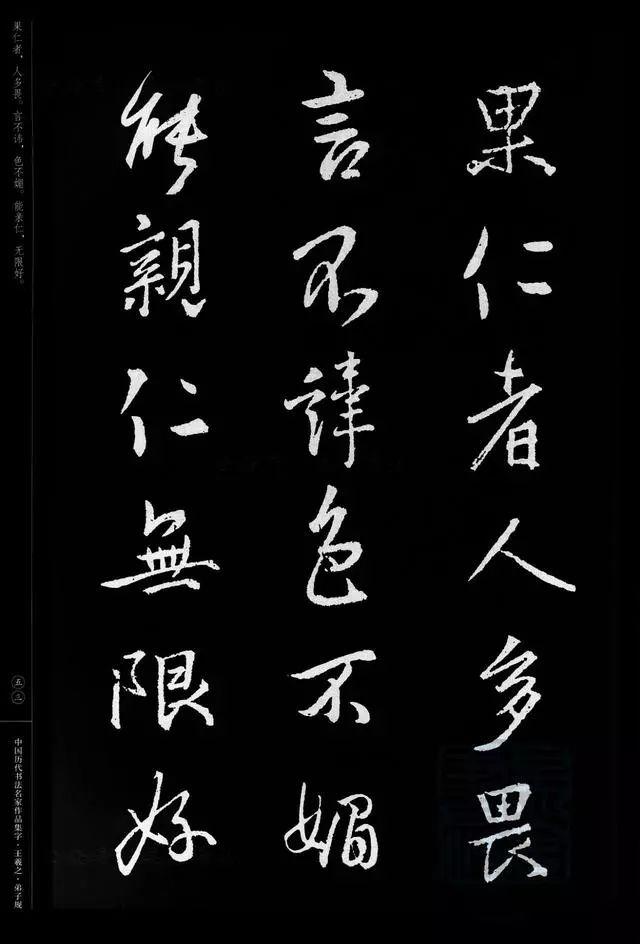 果仁者人多畏
言不諱色不媚
能親仁無限好
果仁者，人多畏。言不讳，色不媚。能亲仁，无限好。
五三
中国历代书法名家作品集字·王羲之·弟子规